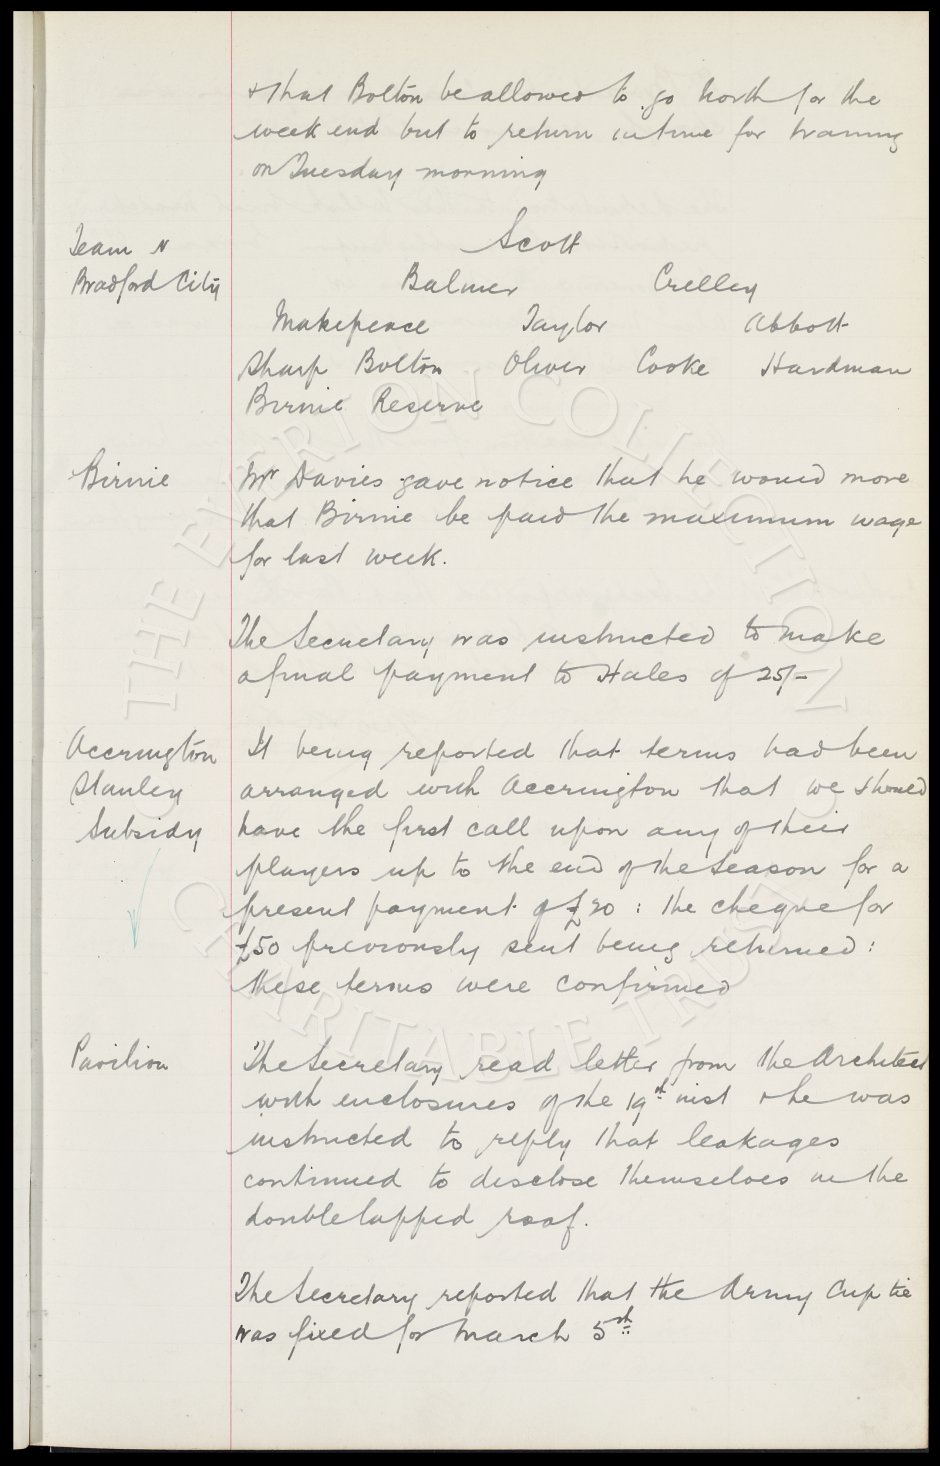 & that Bolton be allowed to go North for the
week end but to return in time for training
on Tuesday morning
Team v
Bradford City
Scott
Balmer Crelley
Makepeace Taylor Abbott
Sharp Bolton Oliver Cooke Hardman
Birnie Reserve
Birnie
Mr Davies gave notice that he would move
that Birnie be paid the maximum wage
for last week.
The Secretary was instructed to make
a final payment to Hales of 25/-
Accrington
Stanley
Subsidy
It being reported that terms had been
arranged with Accrington that we should
have the first call upon any of their
players up to the end of the Season for a
present payment of £20 : the cheque for
£50 previously sent being returned :
these terms were confirmed
Pavilion
The Secretary read letter from the Architect
with enclosures of the 19th inst & he was
instructed to reply that leakages
continued to disclose themselves in the
double lapped roof.
The Secretary reported that the Army Cup tie
was fixed for March 5th
THE EVERTON COLLECTION
CHARITABLE TRUST